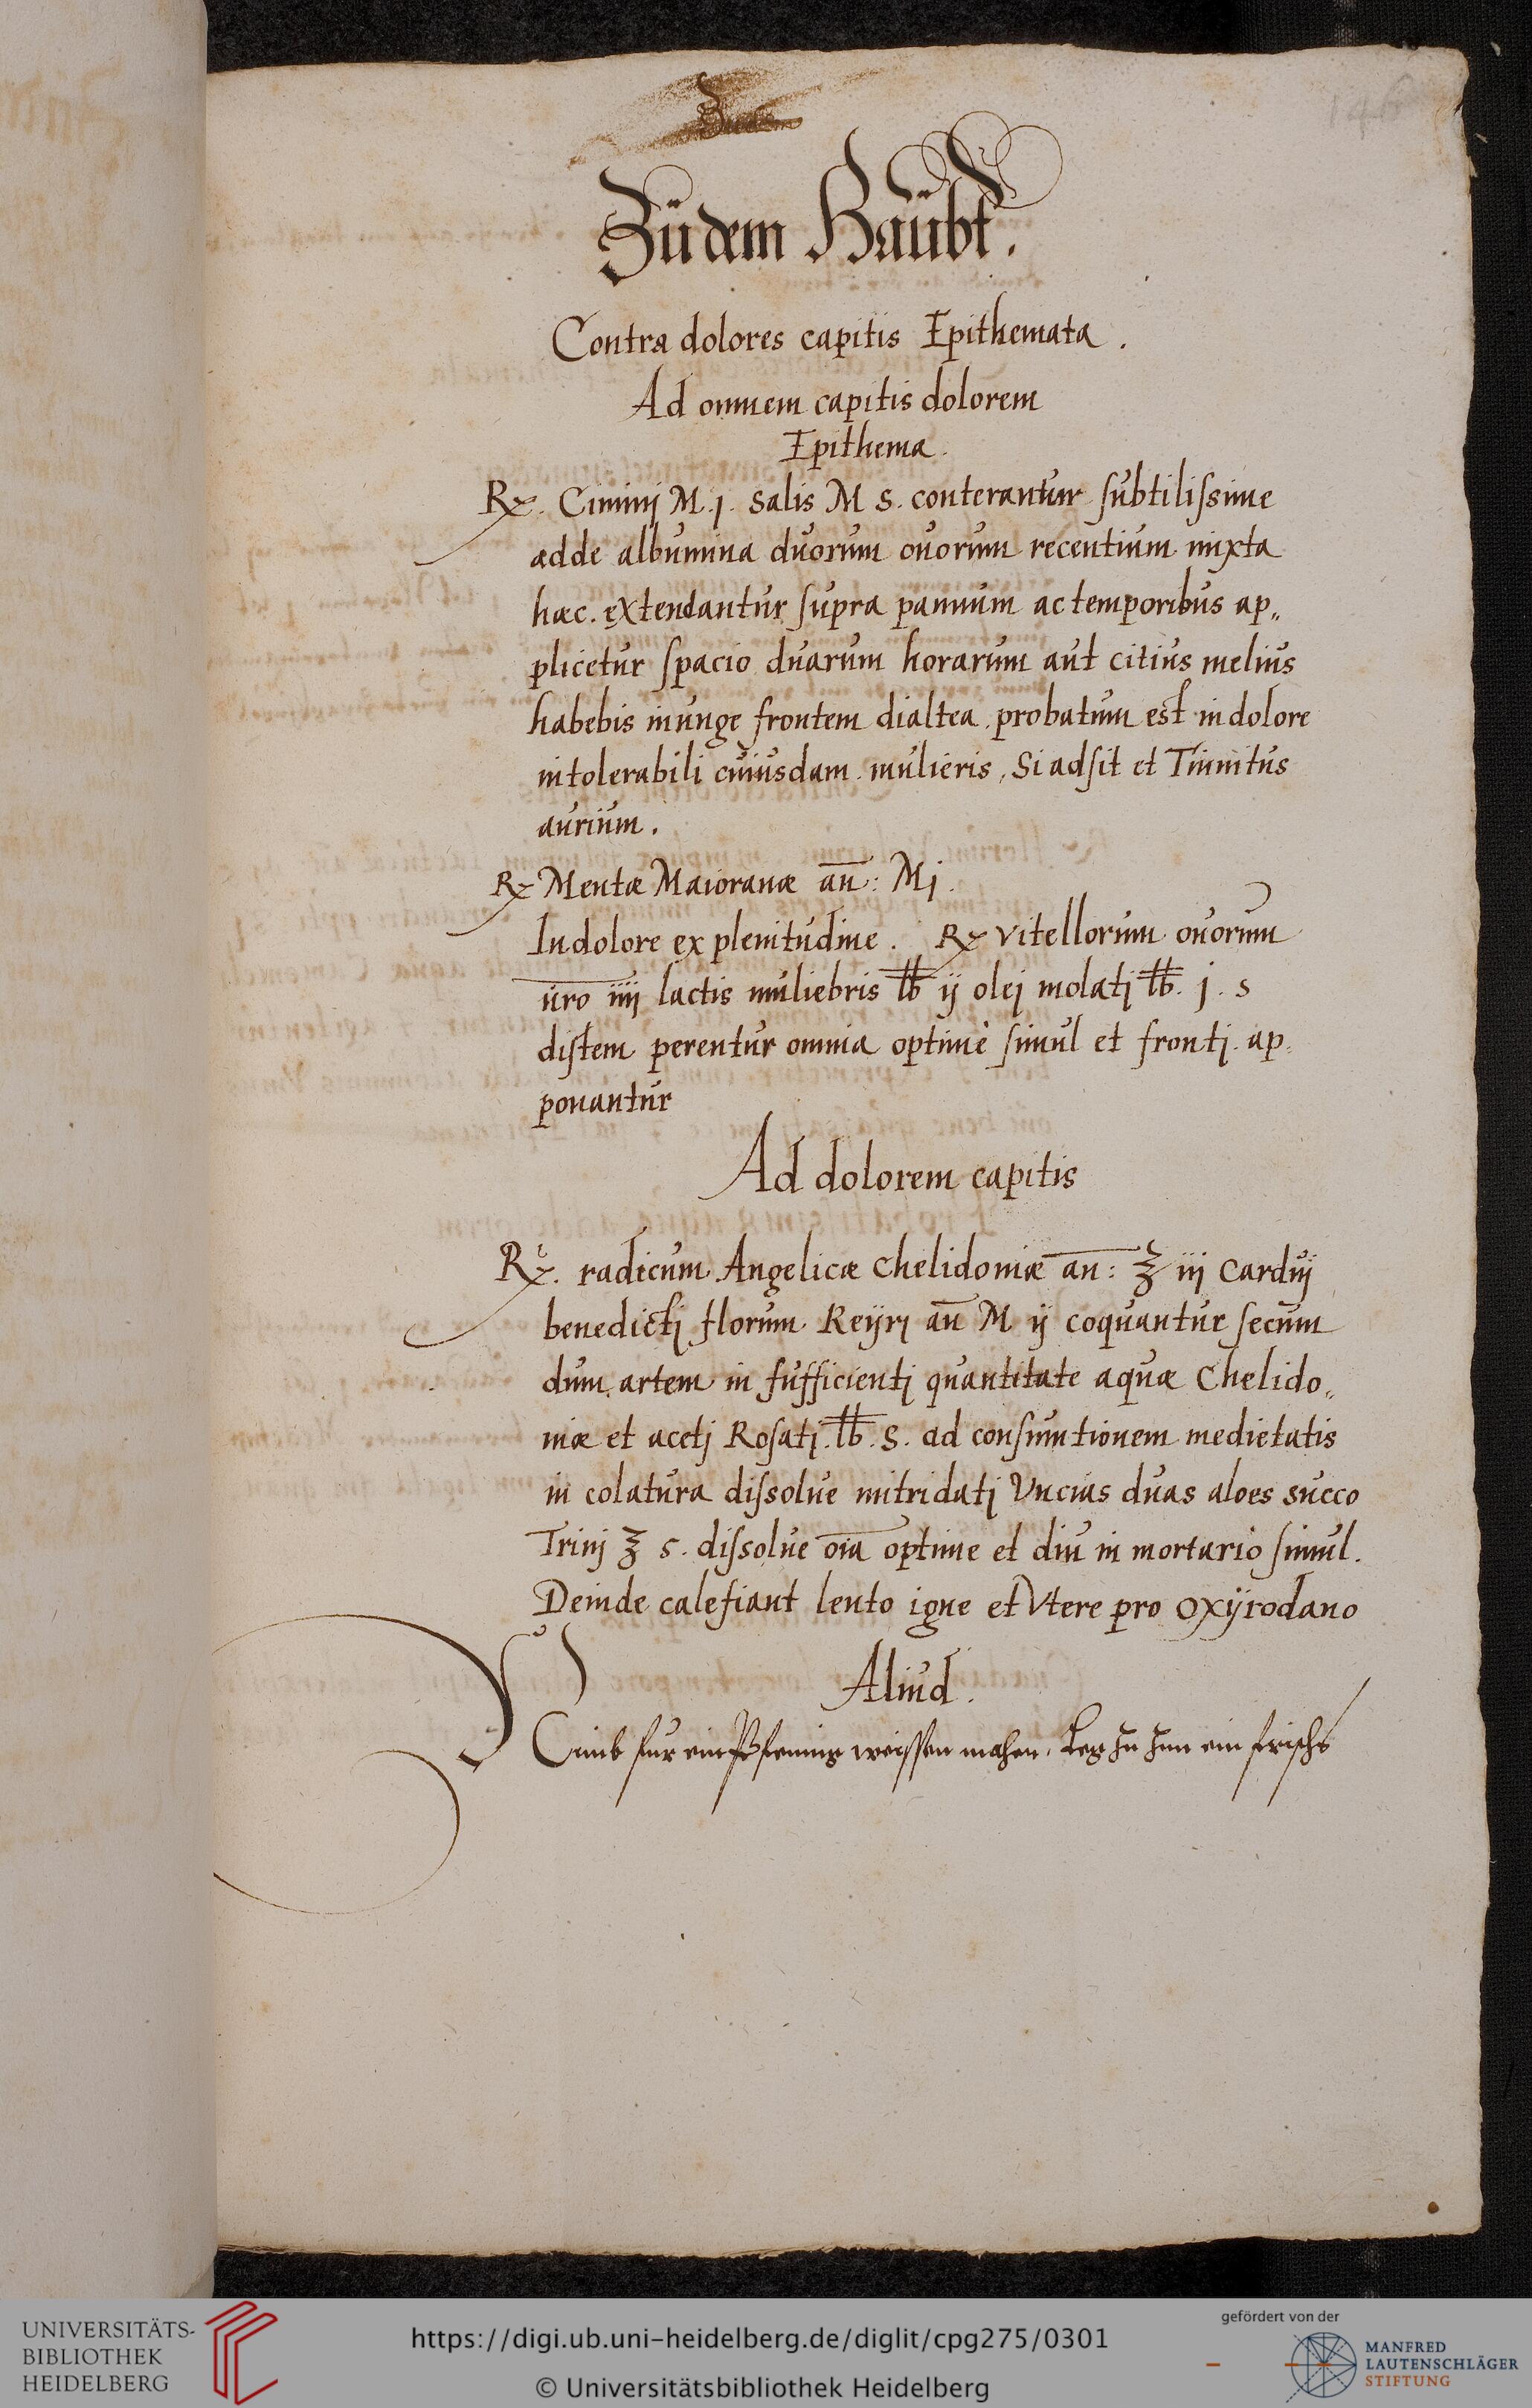 146
Zu dem
Zü dem Haübt.
Contra dolores capitis Epithemata.
Ad omnem capitis dolorem
Epithema.
Rx. Ciminj M. j. salis M s. conterantur subtilissime
adde albumina duorum ouorum recentium mixta
haec. extendantur supra pannum ac temporibus ap„
plicetur spacio duarum horarum aut citius melius
habebis inunge frontem dialtea. probatum est in dolore
intolerabili cuiusdam mulieris, Si adsit et Tinnitus
aurium.
Rx Mentæ Maioranæ an: M j.
In dolore ex plenitudine. Rx vitellorum ouorum
uro iiij lactis muliebris lb ij olej molatj lb. j. s
distem perentur omnia optime simul et frontj. ap„
ponantur
Ad dolorem capitis
Rx. radicum Angelicæ chelidoniæ an: ʒ iij Carduj
benedictj florum Keyrj an M ij coquantur secun
dum artem in sufficientj quantitate aquæ Chelido„
niæ et acetj Rosatj. lb. s. ad consumtionem medietatis
in colatura dissolue mitridatj Vncias duas aloes succo
Trinj ʒ s. dissolue oia optime et diu in mortario simul.
Deinde calefiant lento igne et Vtere pro oxÿrodano
Aliud.
Nimb fur ein Pfennig weissen mahen, leg zu Inn ein frischs
UNIVERSITÄTS-
BIBLIOTHEK
HEIDELBERG
https://digi.ub.uni-heidelberg.de/diglit/cpg275/0301
© Universitätsbibliothek Heidelberg
gefördert von der
MANFRED
LAUTENSCHLÄGER
STIFTUNG